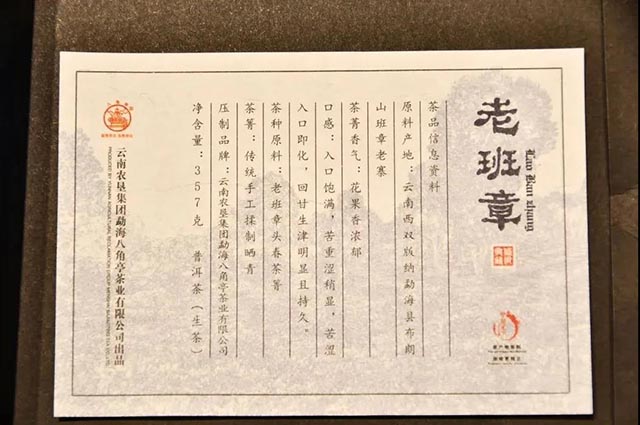 老班章
Lao Ban zhang
茶品信息资料
原料产地：云南西双版纳勐海县布朗
山班章老寨
茶菁香气：花果香浓郁
口感：入口饱满，苦重涩稍显，苦涩
入口即化，回甘生津明显且持久。
茶种原料：老班章头春茶菁
茶菁：传统手工揉制晒青
压制品牌：云南农垦集团勐海八角亭茶业有限公司
净含量：357克 普洱茶（生茶）
云南农垦集团勐海八角亭茶业有限公司出品